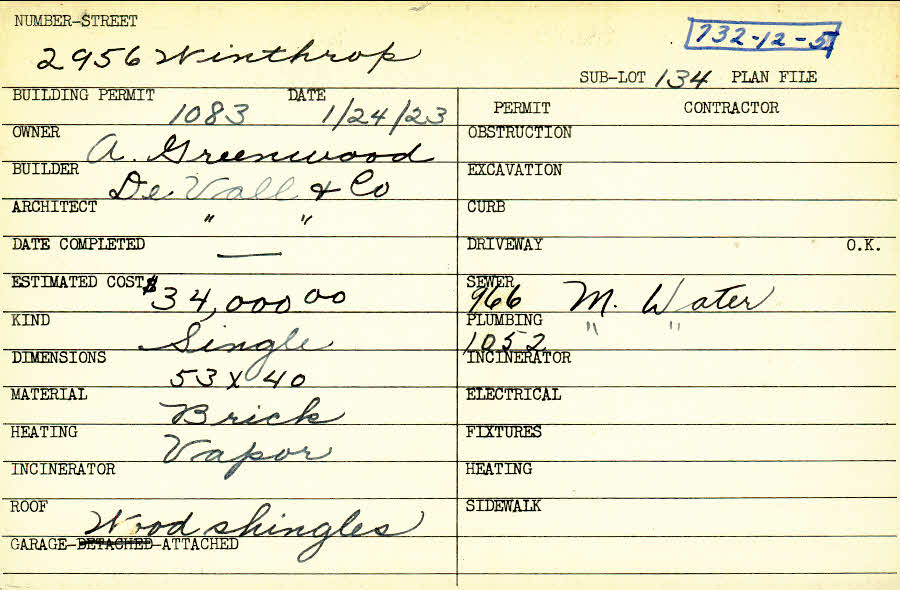 NUMBER-STREET
2956 Winthrop
732-12-5
SUB-LOT 134 PLAN FILE
BUILDING PERMIT 1083 DATE 1/24/23
OWNER A. Greenwood
BUILDER De Vall & Co
ARCHITECT " "
DATE COMPLETED —
ESTIMATED COST $34,000 00
KIND Single
DIMENSIONS 53 x 40
MATERIAL Brick
HEATING Vapor
INCINERATOR
ROOF Wood shingles
GARAGE-DETACHED-ATTACHED
PERMIT CONTRACTOR
OBSTRUCTION
EXCAVATION
CURB
DRIVEWAY O.K.
SEWER 966 M. Water
PLUMBING 1052 " "
INCINERATOR
ELECTRICAL
FIXTURES
HEATING
SIDEWALK